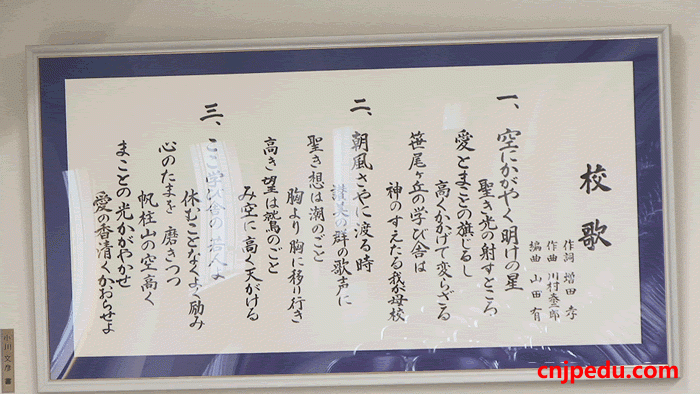 校歌
作詞 増田 孝
作曲 川村泰一郎
編曲 山田 有
一、空にかがやく明けの星
聖き光の射すところ
愛とまことの旗じるし
高くかかげて変らざる
笹尾ヶ丘の学び舎は
神のすえたる我が母校
二、朝風さやに渡る時
讃美の群の歌声に
聖き想は潮のごと
胸より胸に移り行き
高き望は鷲のごと
み空に高く天がける
三、ここ学び舎の若人よ
休むことなくよく励み
心のたまを磨きつつ
帆柱山の空高く
まことの光かがやかせ
愛の香清くかおらせよ
小川 文彦
cnjpedu.com